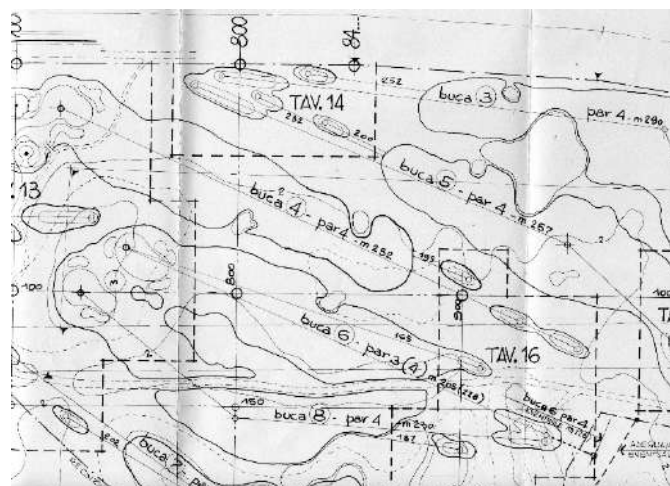 800
84
TAV. 14
252
buca 3
par 4 - m 290
232
200
13
buca 4 - par 4 - m 252
2
buca 5 - par 4 - m 257
2
195
3
100
800
900
100
buca 6 - par 3 (4) m 205 (228)
165
TAV. 16
2
150
buca 8 - par 4 - m 270
187
buca 6 par 4
2
202
buca 7 - pa